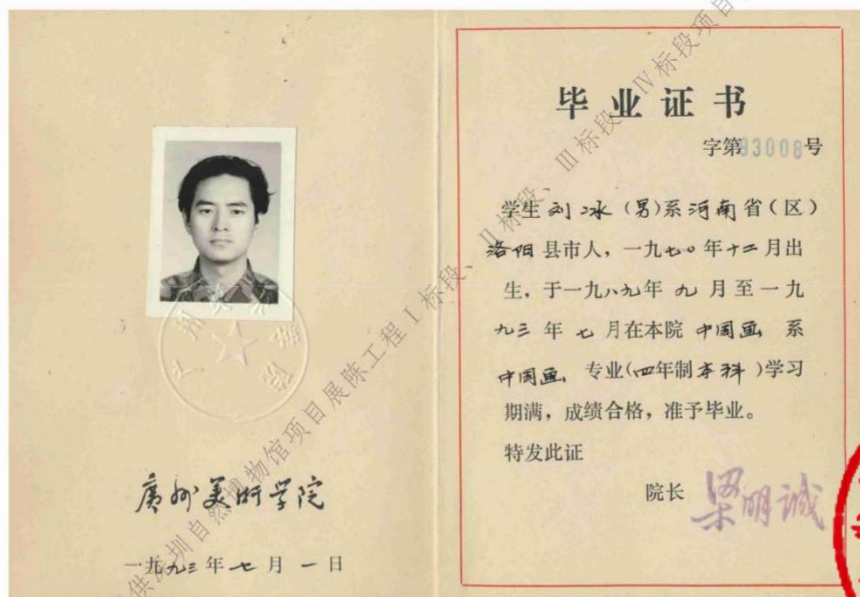 广州美术学院
廣州美術学院
一九九三年七月一日
毕业证书
字第93008号
学生刘冰（男）系河南省（区）
洛阳县市人，一九七〇年十二月出
生，于一九八九年九月至一九
九三年七月在本院中国画系
中国画专业(四年制本科)学习
期满，成绩合格，准予毕业。
特发此证
院长 梁明诚
供深圳自然博物馆项目展陈工程Ⅰ标段、Ⅱ标段、Ⅲ标段、Ⅳ标段项目